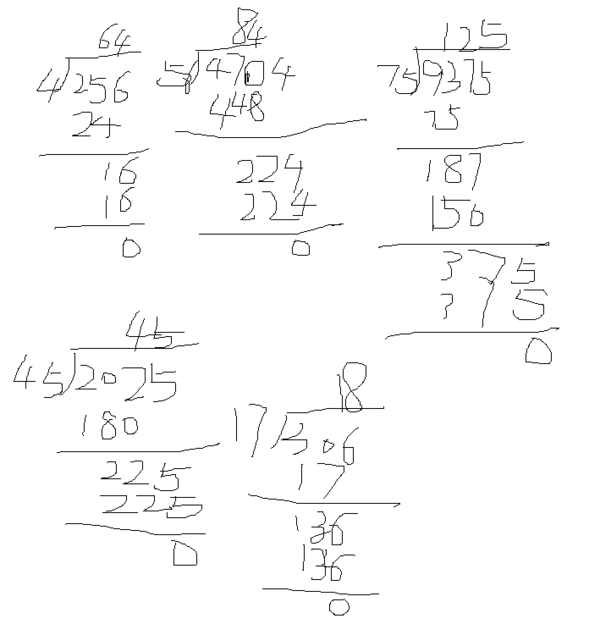 64
4)256
24
16
16
0
84
56)4704
448
224
224
0
125
75)9375
75
187
150
375
375
0
45
45)2025
180
225
225
0
18
17)306
17
136
136
0